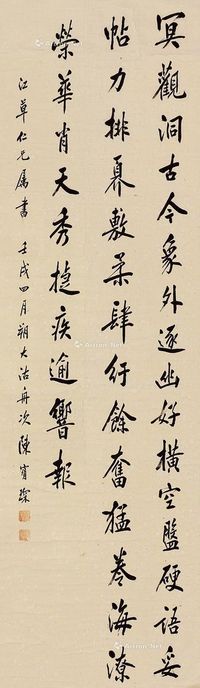 冥觀洞古今象外逐幽好橫空盤硬語妥
帖力排奡敷柔肆紆餘奮猛卷海潦
榮華肖天秀捷疾逾響報
江草仁兄属書 壬戌四月朔大沽舟次陳寶琛